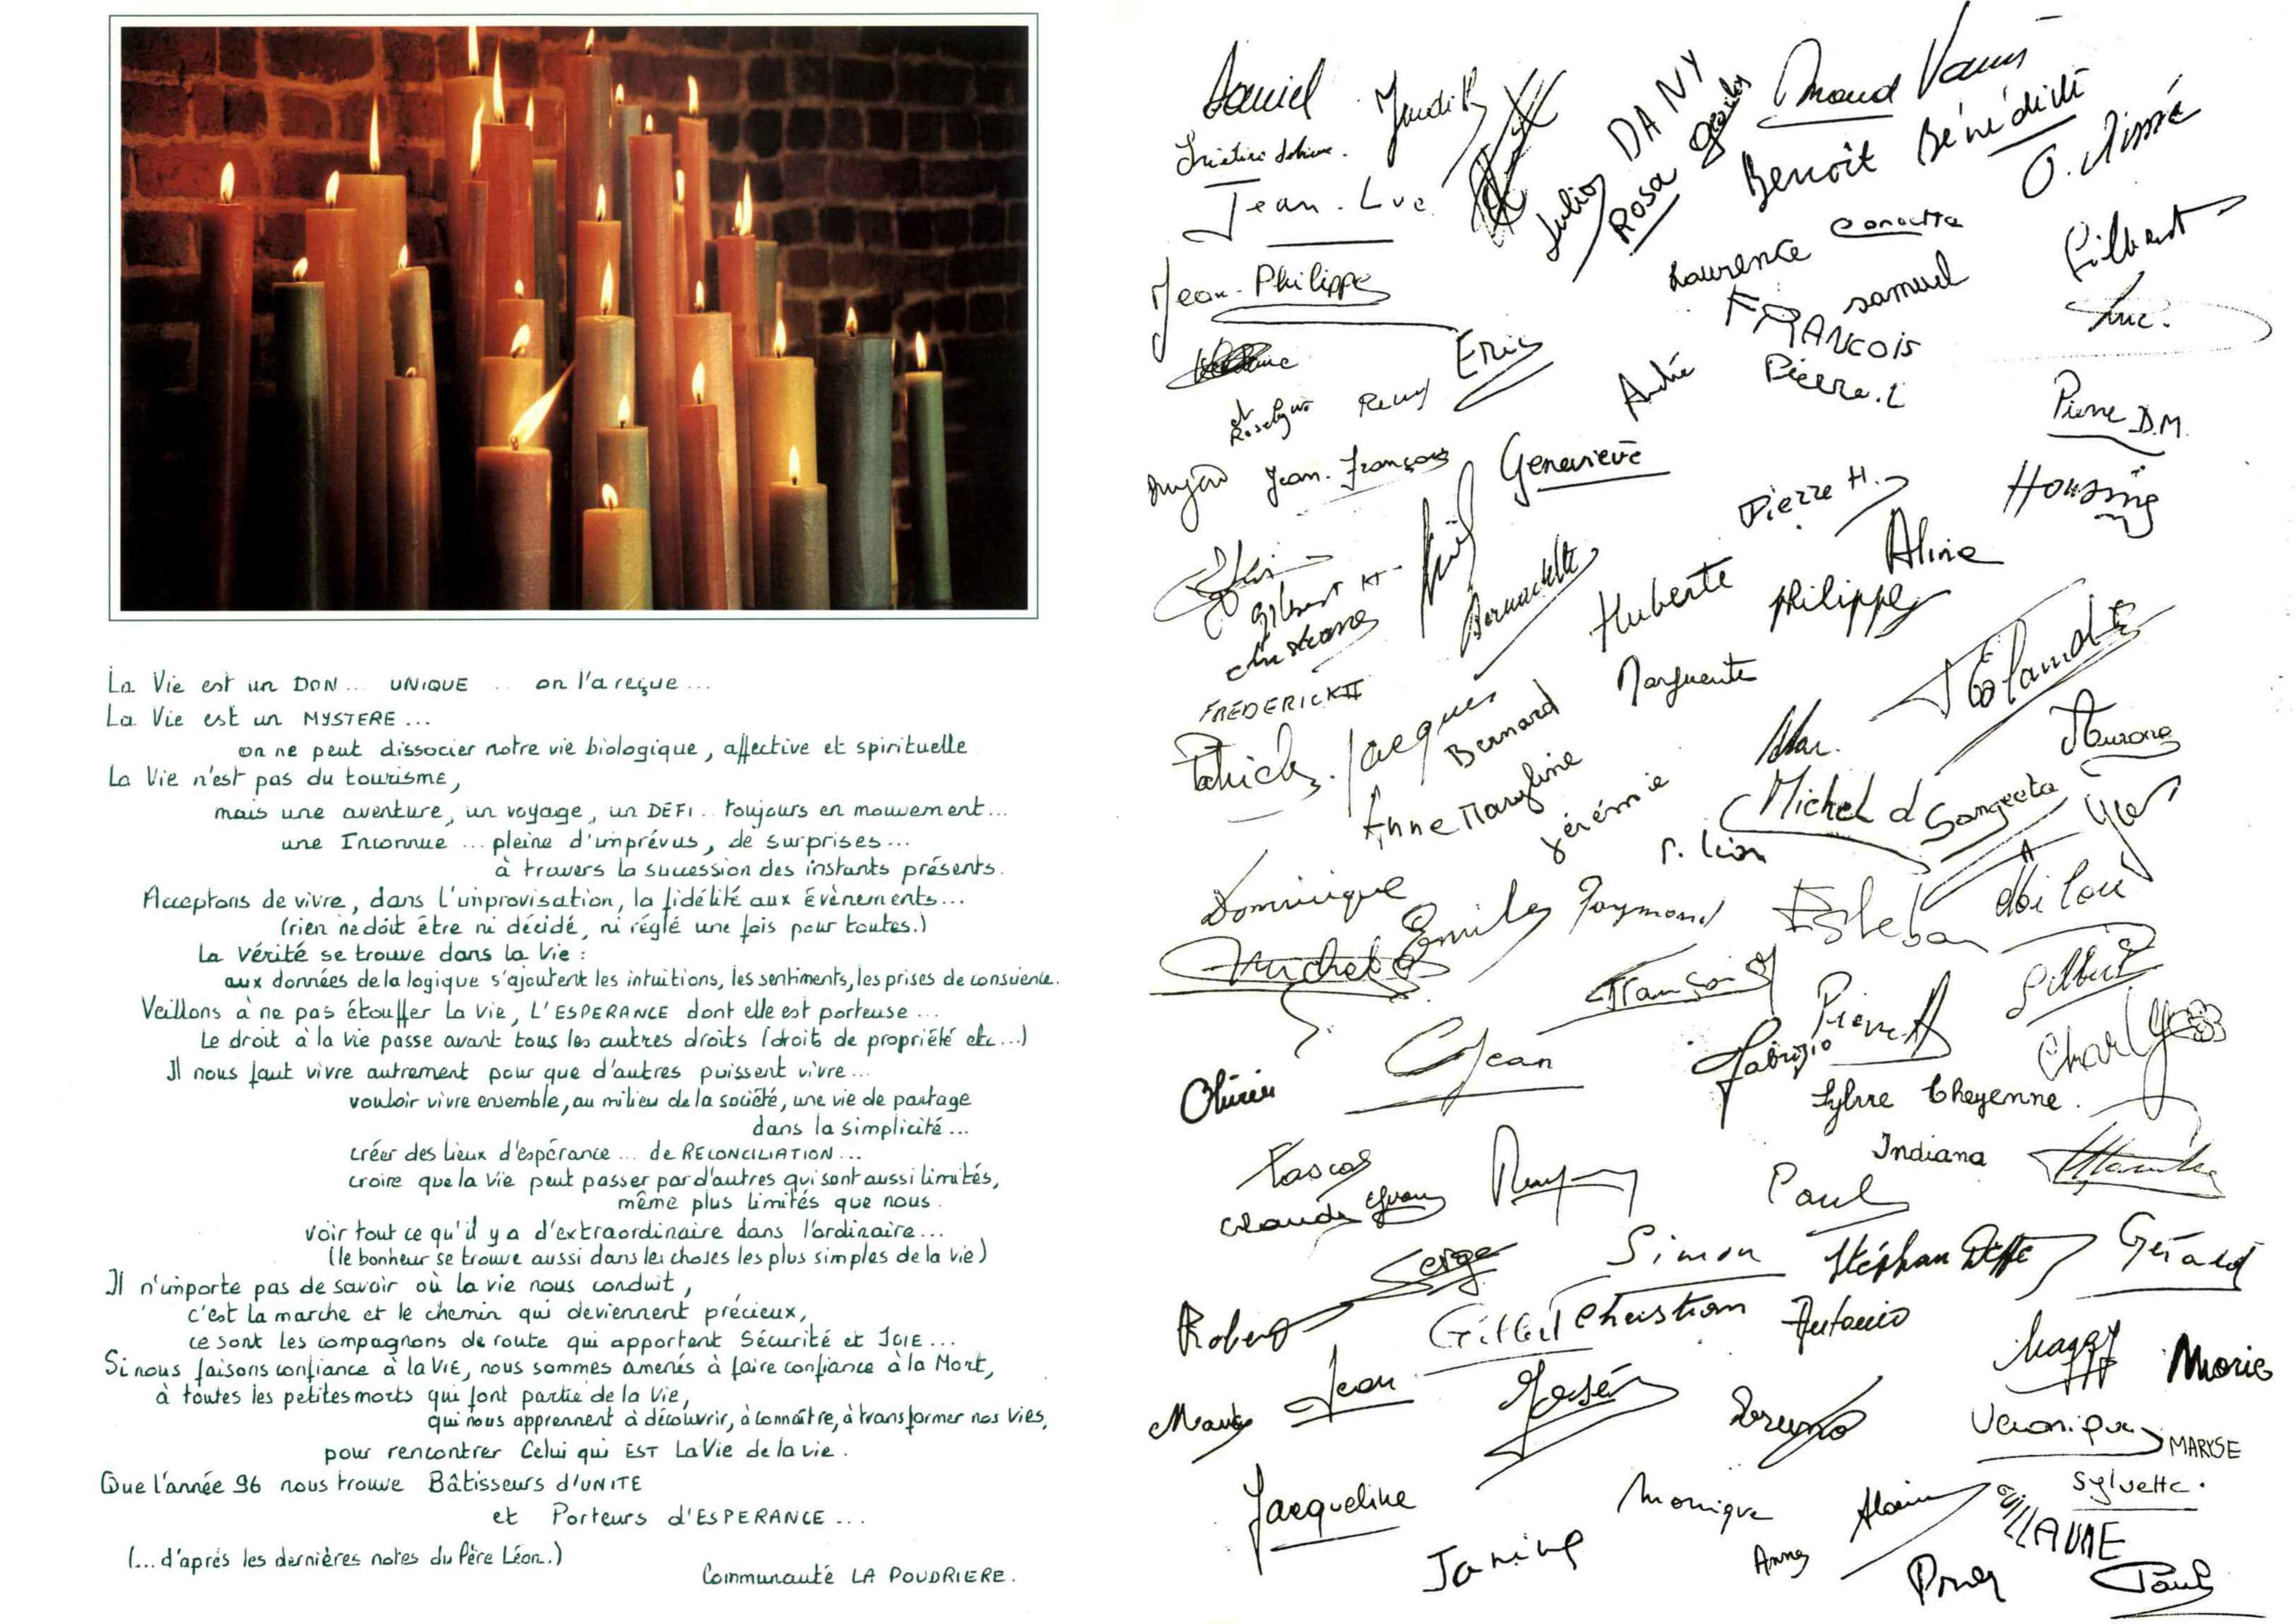 La Vie est un DON... UNIQUE .. on l'a reçue...
La Vie est un MYSTERE...
on ne peut dissocier notre vie biologique, affective et spirituelle
La Vie n'est pas du tourisme,
mais une aventure, un voyage, un DEFI.. toujours en mouvement...
une Inconnue... pleine d'imprévus, de surprises...
à travers la sucession des instants présents.
Acceptons de vivre, dans l'improvisation, la fidélité aux évènements...
(rien ne doit être ni décidé, ni réglé une fois pour toutes.)
La vérité se trouve dans la Vie :
aux données de la logique s'ajoutent les intuitions, les sentiments, les prises de conscience.
Veillons à ne pas étouffer la Vie, L'ESPERANCE dont elle est porteuse...
Le droit à la vie passe avant tous les autres droits (droit de propriété etc...)
Il nous faut vivre autrement pour que d'autres puissent vivre...
vouloir vivre ensemble, au milieu de la société, une vie de partage
dans la simplicité...
créer des lieux d'espérance... de RECONCILIATION...
croire que la Vie peut passer par d'autres qui sont aussi limités,
même plus limités que nous.
voir tout ce qu'il y a d'extraordinaire dans l'ordinaire...
(le bonheur se trouve aussi dans les choses les plus simples de la vie)
Il n'importe pas de savoir où la vie nous conduit,
c'est la marche et le chemin qui deviennent précieux,
ce sont les compagnons de route qui apportent Sécurité et JOIE...
Si nous faisons confiance à la VIE, nous sommes amenés à faire confiance à la Mort,
à toutes les petites morts qui font partie de la Vie,
qui nous apprennent à découvrir, à connaître, à transformer nos Vies,
pour rencontrer Celui qui EST La Vie de la vie.
Que l'année 96 nous trouve Bâtisseurs d'UNITE
et Porteurs d'ESPERANCE...
(... d'après les dernières notes du Père Léon.)
Communauté LA POUDRIERE.
Daniel
Jean-Luc
Julio
DANY
Rosa
Benoît
Bénédicte
O. Aimé
Jean-Philippe
Laurence
samuel
FRANCOIS
Gilbert
Luc.
Eric
Remy
André
Pierre.L
Pierre D.M.
Jean-François
Geneviève
Pierre H.
Housing
Gilbert H
Christiane
Bernadette
Huberte
Philippe
Aline
FREDERICK II
Marguerite
Yolande
Patrick
Jacques
Bernard
Anne Maryline
Jérémie
Marc
Michel d
Sangeeta
Aurore
Yves
P. Léon
Dominique
Emile
Raymond
Esteban
Michel
François
Pierre A
Gilbert
Charly
Olivier
Jean
Fabrizio
Sylvie Cheyenne.
Indiana
Claude
Paul
Serge
Simon
Stéphan
Gérard
Robert
Gilbert
Christian
Antonio
Maggy
Marie
Jean
José
Bruno
Véronique
MARYSE
Jacqueline
Monique
Alain
GUILLAUME
Sylvette.
Janine
Anne
Paul